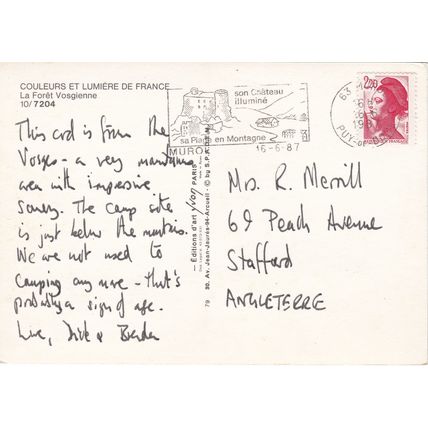 COULEURS ET LUMIÈRE DE FRANCE
La Forêt Vosgienne
10/7204
This card is from the
Vosges - a very mountainous
area with impressive
scenery. The camp site
is just below the mountains.
We are not used to
camping any more - that's
probably a sign of age.
Love, Dick &
son Château
illuminé
sa Plage en Montagne
MUROL
16-6-87
63
PUY-DE-
2,20
Éditions d'art Yvon PARIS
30, Av. Jean-Jaurès-94-Arcueil - © by S.P.A.D.E.M.
79
Mrs. R. Merrill
69 Peach Avenue
Stafford
ANGLETERRE